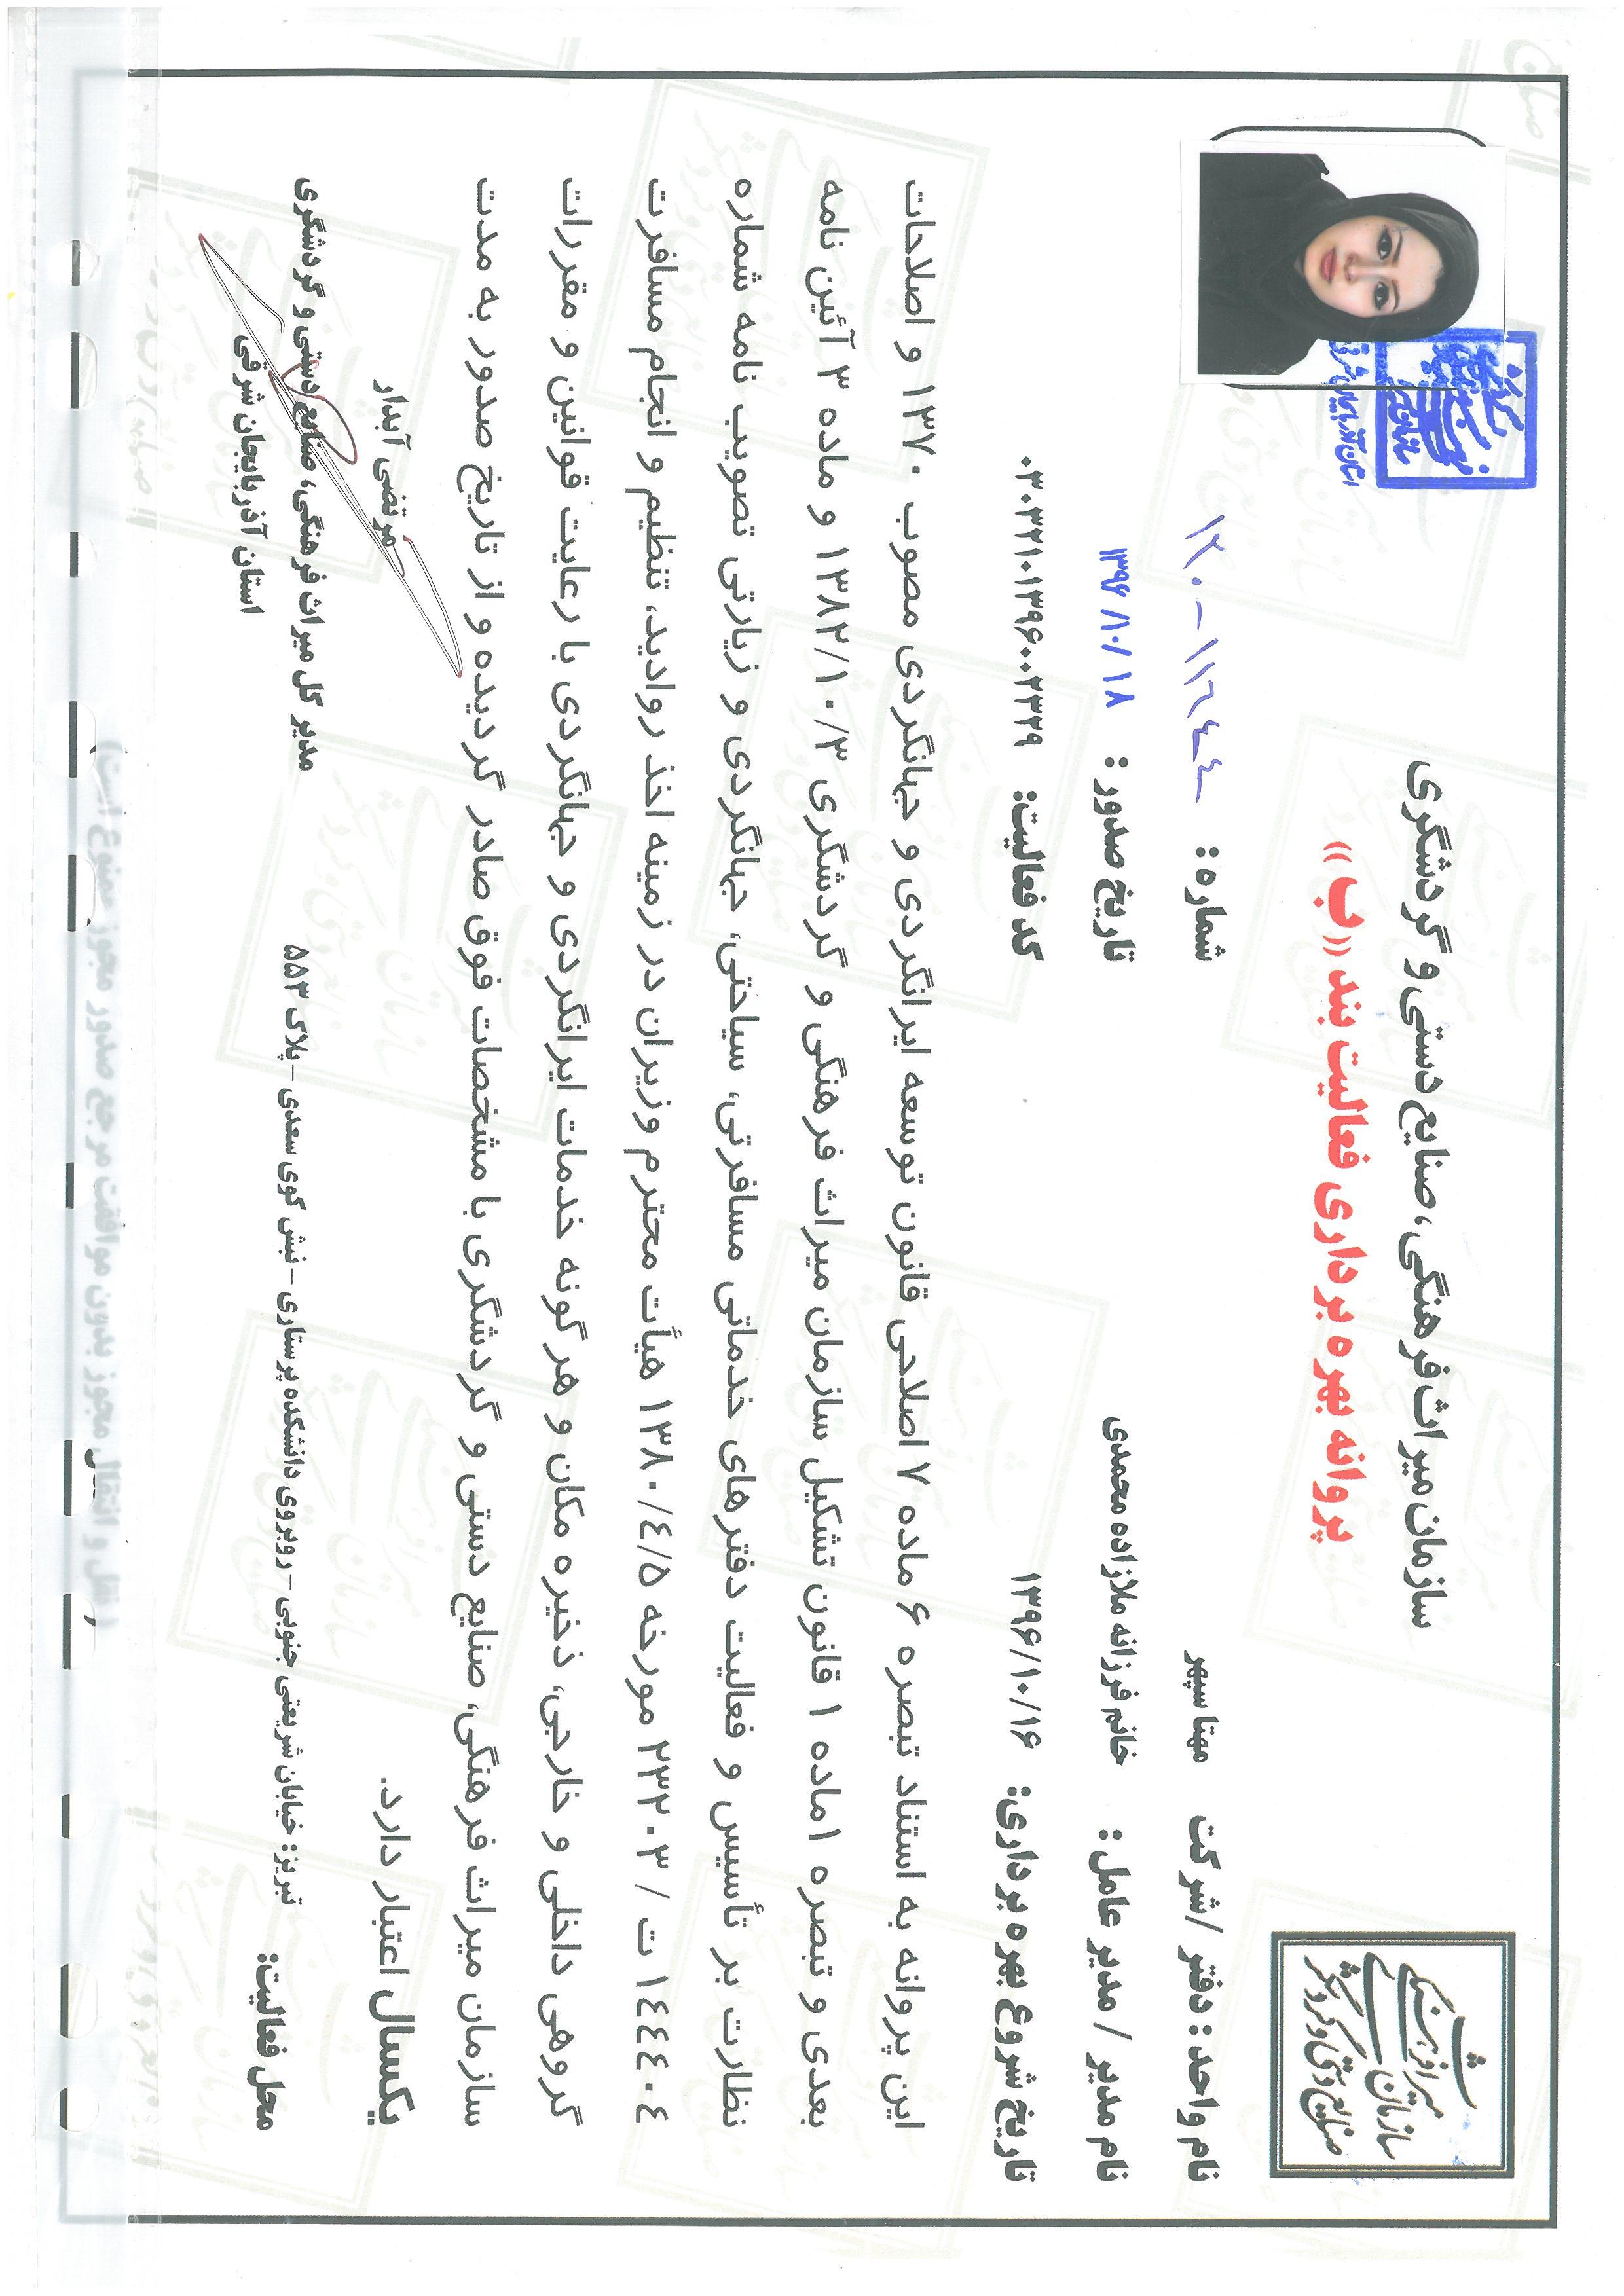 سازمان میراث فرهنگی، صنایع دستی و گردشگری
پروانه بهره برداری فعالیت بند ((ب))
سازمان
میراث فرهنگی
صنایع دستی و گردشگری
نام واحد: دفتر / شرکت مهتا سپهر
شماره: ۱۱٦٤٤-۱۲۰
نام مدیر / مدیر عامل: خانم فرزانه ملازاده محمدی
تاریخ صدور: ۱۳۹۶/۱۰/۱۸
تاریخ شروع بهره برداری: ۱۳۹۶/۱۰/۱۶
کد فعالیت: ۰۳۰۳۲۱۰۱۳۹۶۰۰۲۳۲۹
استان آذربایجان شرقی
این پروانه به استناد تبصره ۶ ماده ۷ اصلاحی قانون توسعه ایرانگردی و جهانگردی مصوب ۱۳۷۰ و اصلاحات
بعدی و تبصره ۱ماده ۱ قانون تشکیل سازمان میراث فرهنگی و گردشگری ۱۳۸۲/۱۰/۳ و ماده ۳ آئین نامه
نظارت بر تأسیس و فعالیت دفترهای خدماتی مسافرتی، سیاحتی، جهانگردی و زیارتی تصویب نامه شماره
۱٤٤٤۰٤ ت / ۲۳۲۰۳ مورخه ۱۳۸۰/٤/۵ هیأت محترم وزیران در زمینه اخذ روادید، تنظیم و انجام مسافرت
گروهی داخلی و خارجی، ذخیره مکان و هرگونه خدمات ایرانگردی و جهانگردی با رعایت قوانین و مقررات
سازمان میراث فرهنگی، صنایع دستی و گردشگری با مشخصات فوق صادر گردیده و از تاریخ صدور به مدت
یکسال اعتبار دارد.
مرتضی آبدار
مدیر کل میراث فرهنگی، صنایع دستی و گردشگری
استان آذربایجان شرقی
محل فعالیت: تبریز: خیابان شریعتی جنوبی – روبروی دانشکده پرستاری – نبش کوی سعدی – پلاک ۵۵۳
( نقل و انتقال مجوز بدون موافقت مرجع صدور مجوز ممنوع است )